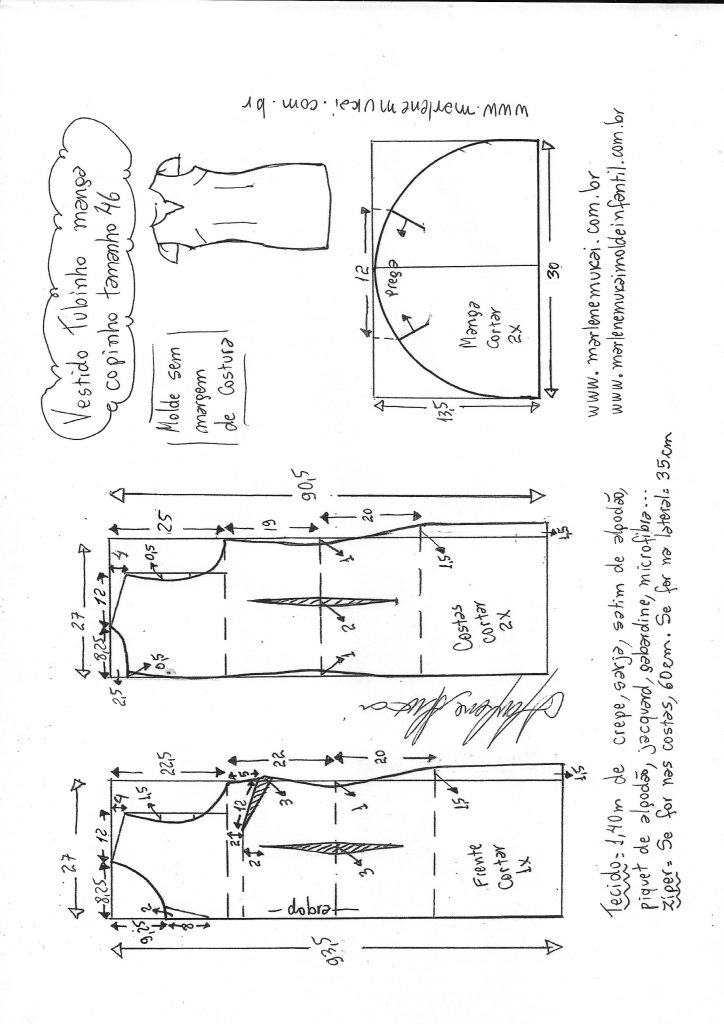 Vestido Tubinho manga
copinho tamanho 46
Molde sem
margem
de Costura
www.marlenemukai.com.br
90,5
25
19
20
27
8,25
12
4
0,5
2,5
0,5
1
2
1
1,5
1,5
Costas
Cortar
2X
12
Prega
Manga
Cortar
2X
13,5
30
www.marlenemukai.com.br
www.marlenemukaimoldeinfantil.com.br
22,5
22
20
27
8,25
12
4
1,5
5
12
3
2
2
3
1
1,5
1,5
9,25
2
8
dobra
93,5
Frente
Cortar
1x
Tecido = 1,40m de crepe, sarja, satim de algodão,
piquet de algodão, jacquard, gabardine, microfibra...
Zíper = Se for nas costas, 60cm. Se for na lateral = 35cm